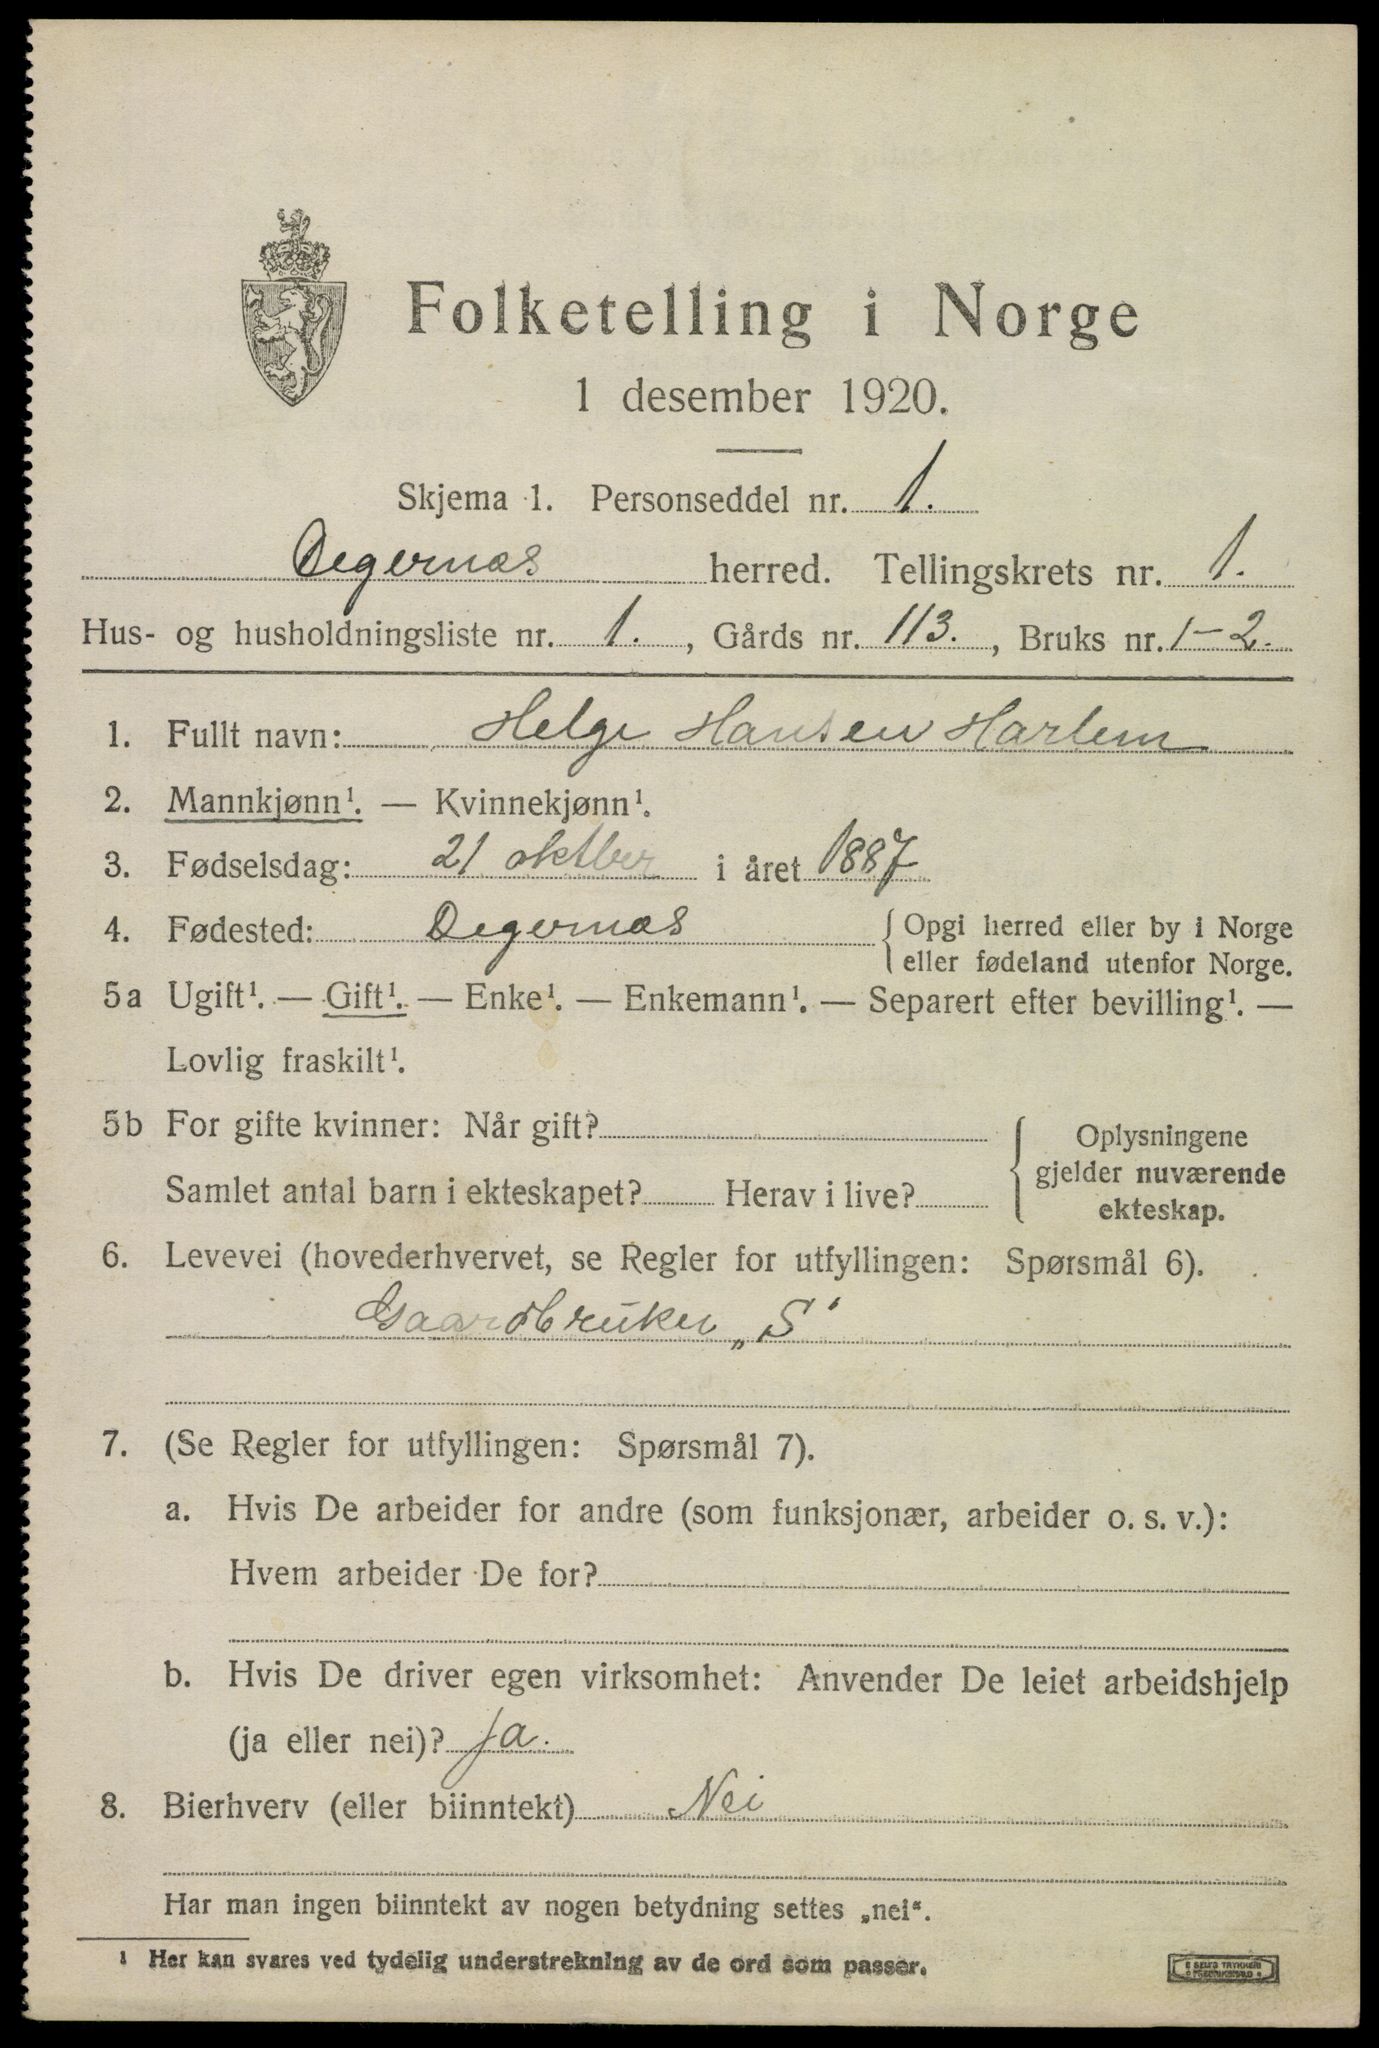 Folketelling i Norge
1 desember 1920.
Skjema 1. Personseddel nr. 1.
Degernes herred. Tellingskrets nr. 1.
Hus- og husholdningsliste nr. 1., Gårds nr. 113., Bruks nr. 1-2.
1. Fullt navn: Helge Hansen Harlem
2. Mannkjønn¹. — Kvinnekjønn¹.
3. Fødselsdag: 21 oktber i året 1887
4. Fødested: Degernes { Opgi herred eller by i Norge
eller fødeland utenfor Norge.
5a Ugift¹. — Gift¹. — Enke¹. — Enkemann¹. — Separert efter bevilling¹. —
Lovlig fraskilt¹.
5b For gifte kvinner: Når gift? { Oplysningene
gjelder nuværende
Samlet antal barn i ekteskapet? Herav i live? ekteskap.
6. Levevei (hovederhvervet, se Regler for utfyllingen: Spørsmål 6).
Gaardbruker „S‘
7. (Se Regler for utfyllingen: Spørsmål 7).
a. Hvis De arbeider for andre (som funksjonær, arbeider o. s. v.):
Hvem arbeider De for?
b. Hvis De driver egen virksomhet: Anvender De leiet arbeidshjelp
(ja eller nei)? Ja.
8. Bierhverv (eller biinntekt) Nei
Har man ingen biinntekt av nogen betydning settes „nei“.
¹ Her kan svares ved tydelig understrekning av de ord som passer.
E SELI'S TRYKKERI
FREDRIKSTAD